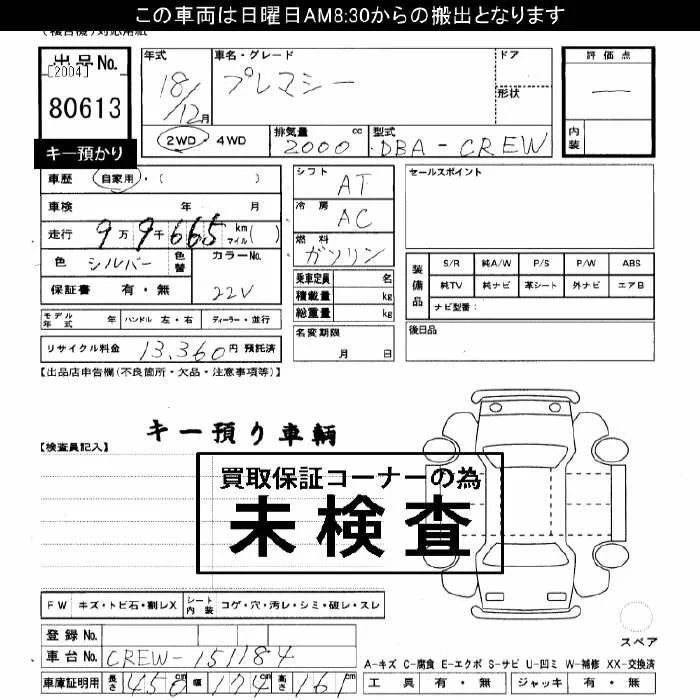 この車両は日曜日AM8:30からの搬出となります
出品No.
[2004]
80613
キー預かり
年式
18/12月
車名・グレード
プレマシー
ドア
形状
評価点
—
内装
2WD・4WD
排気量 2000 cc
型式 DBA-CREW
車歴 自家用・( )
車検 年 月
走行 9万9千665 km マイル( )
色 シルバー 色替
カラーNo. 22V
保証書 有・無
シフト AT
冷房 AC
燃料 ガソリン
乗車定員 名
積載量 kg
総重量 kg
名変期限
月 日
セールスポイント
装備品
S/R 純A/W P/S P/W ABS
純TV 純ナビ 革シート 外ナビ エアB
ナビ型番:
後日品
モデル年式 年 ハンドル 左・右 ディーラー・並行
リサイクル料金 13,360円 預託済
【出品店申告欄(不良箇所・欠品・注意事項等)】
キー預り車輌
【検査員記入】
買取保証コーナーの為
未検査
FW キズ・トビ石・割レX シート内装 コゲ・穴・汚レ・シミ・破レ・スレ
登録No.
車台No. CREW-151184
車庫証明用 長さ 450cm 幅 174cm 高さ 161cm
スペア
A-キズ C-腐食 E-エクボ S-サビ U-凹ミ W-補修 XX-交換済
工具 有・無 ジャッキ 有・無